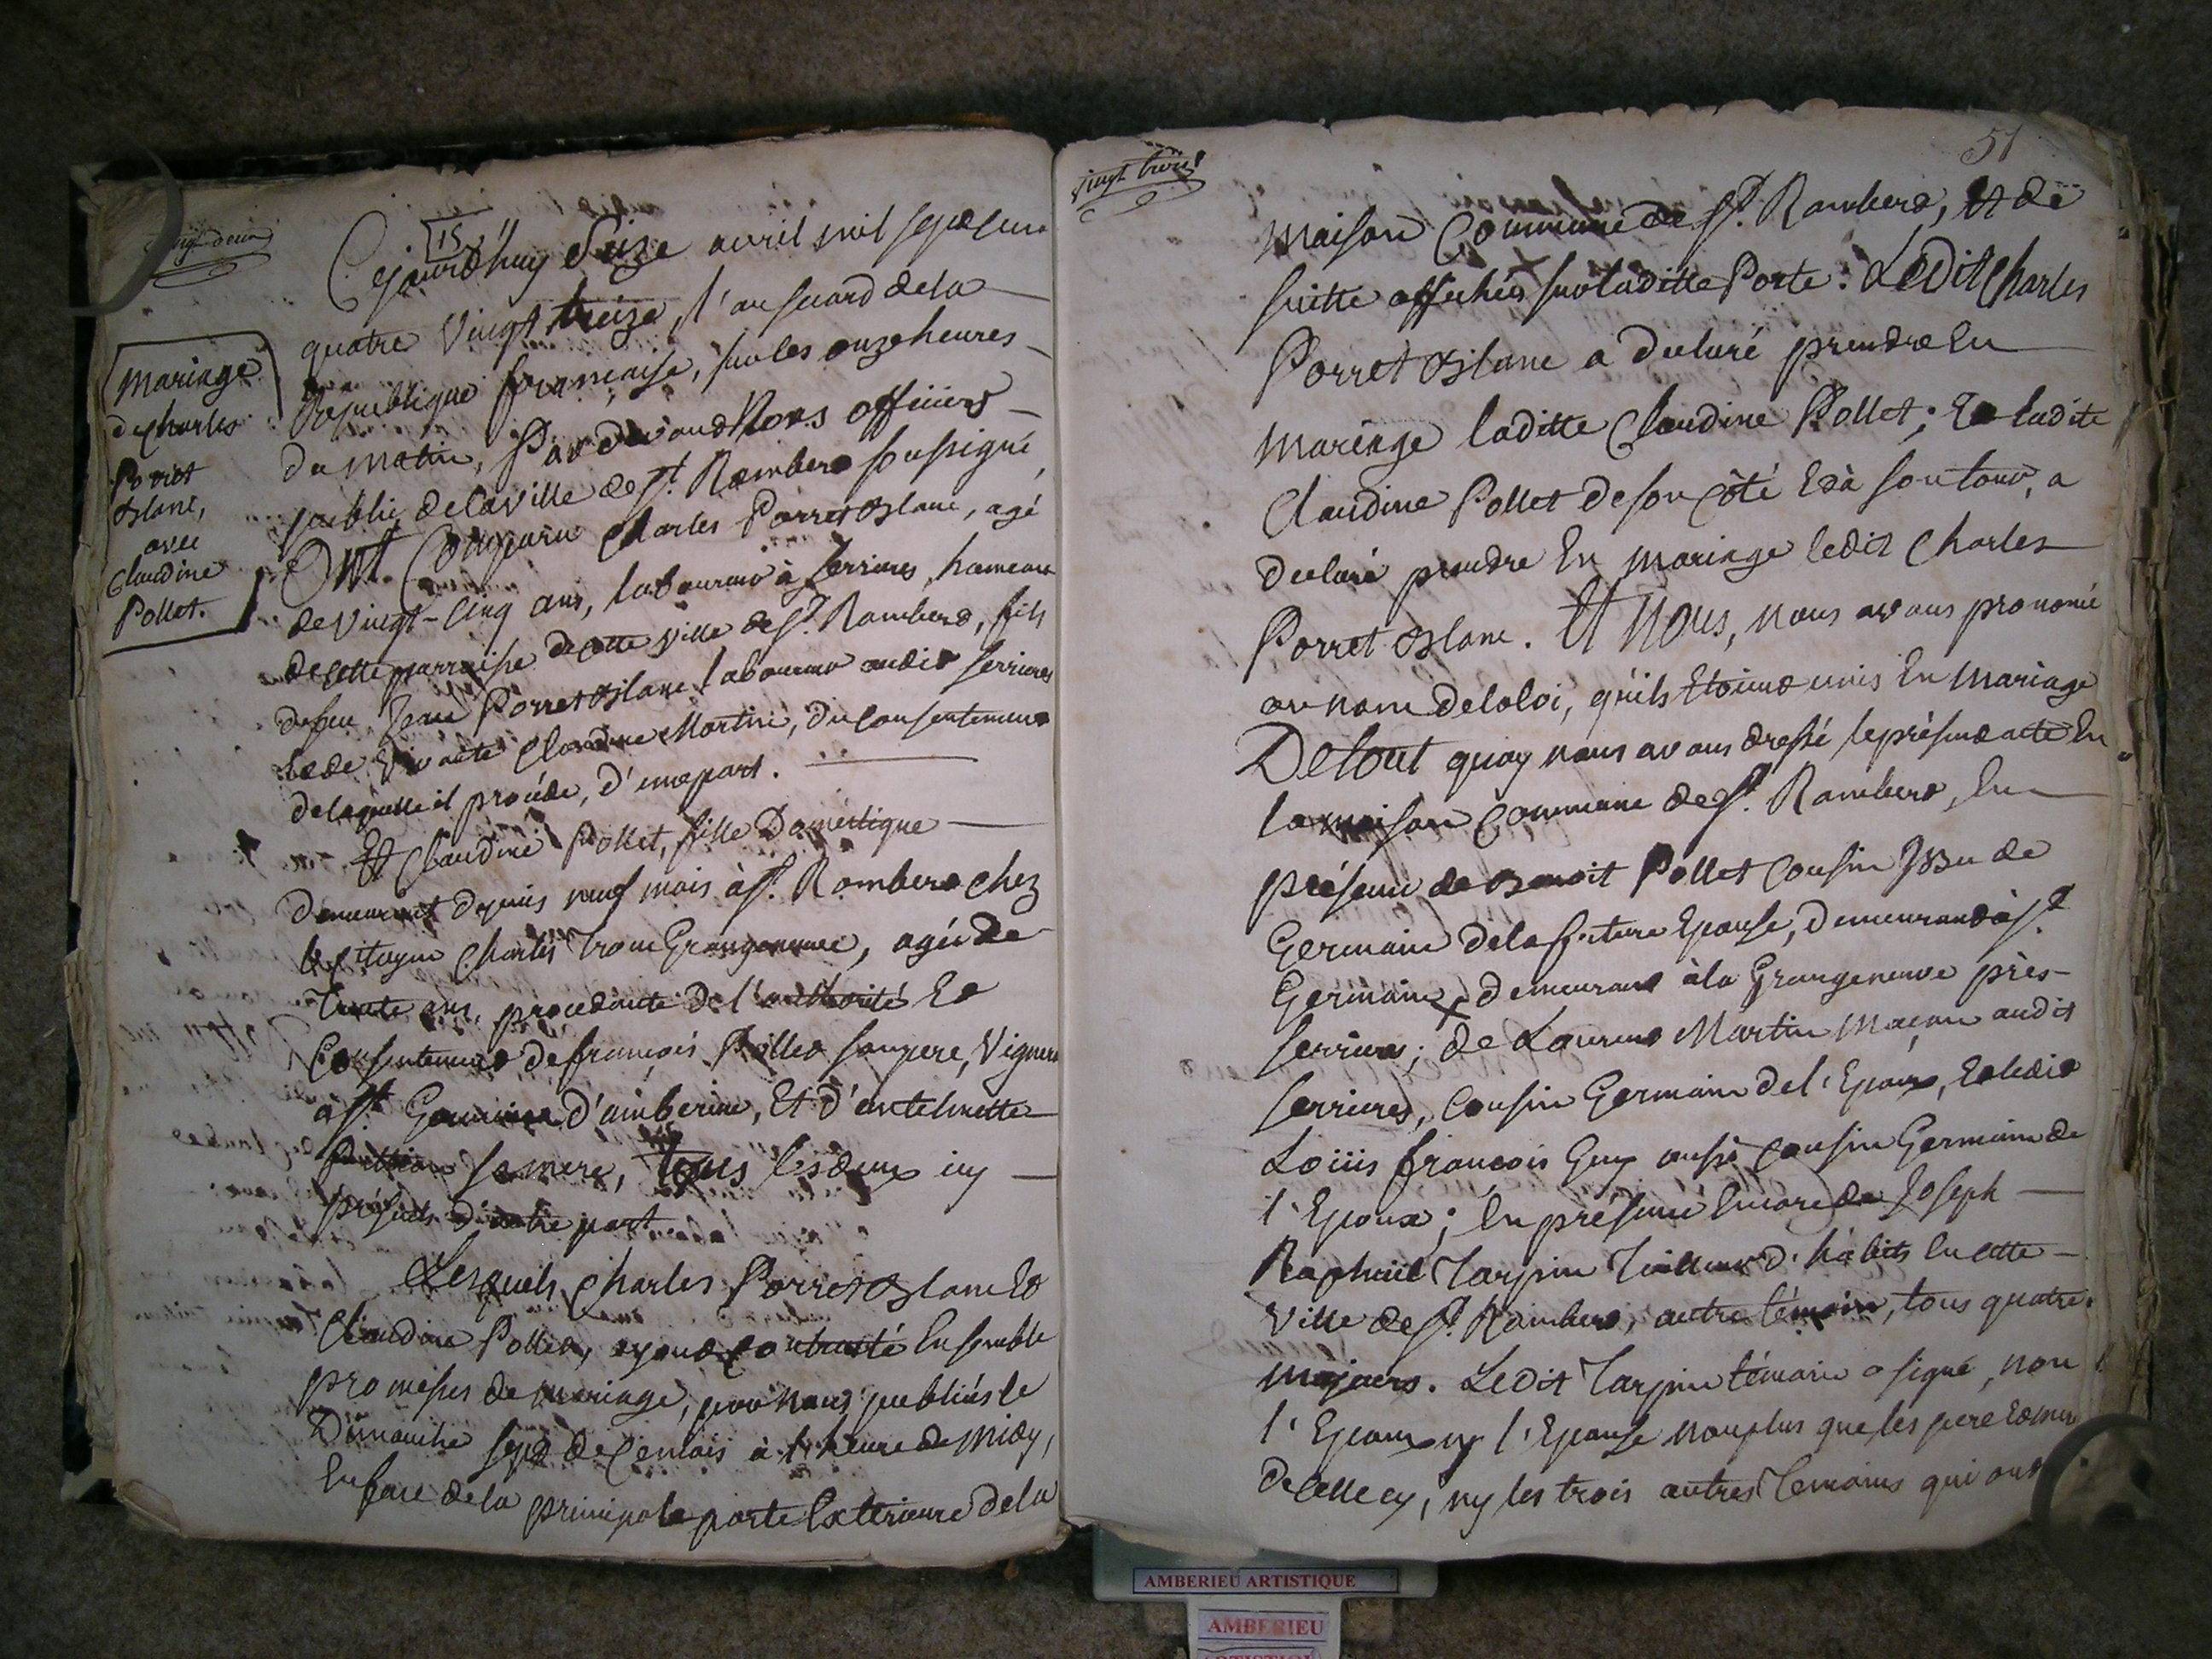 vingt deux
15
Cejourd'huy Seize avril mil sept cent
quatre vingt treize, l'an second de la
République françoise, sur les onze heures
du matin, Par devand Nous officiers
public de la ville de St. Rambert soussigné,
Ont Comparu Charles Porret Blanc, agé
de vingt-cinq ans, laboureur à Serrieres, hameau
de cette parroisse de cette ville de St. Rambert, fils
de feu Jean Porret Blanc laboureur audit Serrieres
et de vivante Claudine Martin, du consentement
de laquelle il procéde, d'une part.
Et Claudine Pollet, fille Domestique
demeurant depuis neuf mois à St. Rambert chez
le citoyen Charles Trocu Grangeneuve, agée de
Trente ans, procedante de l'authorité et
Consentement de françois Pollet son pere, Vigneron
à St. Germain d'ambérieu, Et d'antelmette
sa mere, tous les deux icy
présents d'autre part
Lesquels Charles Porret Blanc et
Claudine Pollet, ayand contracté Ensemble
promesses de mariage, par nous publiés le
Dimanche sept de ce mois à l'heure de midy,
En face de la principale porte Extérieure de la
mariage
de Charles
Porret
Blanc,
avec
Claudine
Pollet.
vingt trois
51
maison Commune de St. Rambert, Et de
suitte affichés sur laditte Porte: Ledit Charles
Porret Blanc a déclaré prendre En
mariage laditte Claudine Pollet; Et ladite
Claudine Pollet de son côté Et à son tour, a
declaré prendre En mariage ledit Charles
Porret Blanc. Et Nous, nous avons prononcé
au nom de la loi, qu'ils Etoient unis En mariage
De tout quoy nous avons dressé le présend acte En
la maison Commune de St. Rambert, En
présence de Benoit Pollet Cousin Issu de
Germain de la future Epouse, demeurand à St.
Germain, demeurant à la Grangeneuve près
Serrieres; de Laurent Martin Maçon audit
Serrieres, Cousin Germain de l'Epoux, Et ledit
Loüis françois Guy aussi Cousin Germain de
l'Epoux; En présence Encore de Joseph
Raphaël Tarpin Tailleur d'habits En cette
ville de St. Rambert, autre témoin, tous quatre
majeurs. Ledit Tarpin témoin a signé, non
l'Epoux ny l'Epouse non plus que les pere et mere
de celle cy, ny les trois autres Temoins qui ont
AMBERIEU ARTISTIQUE
AMBERIEU